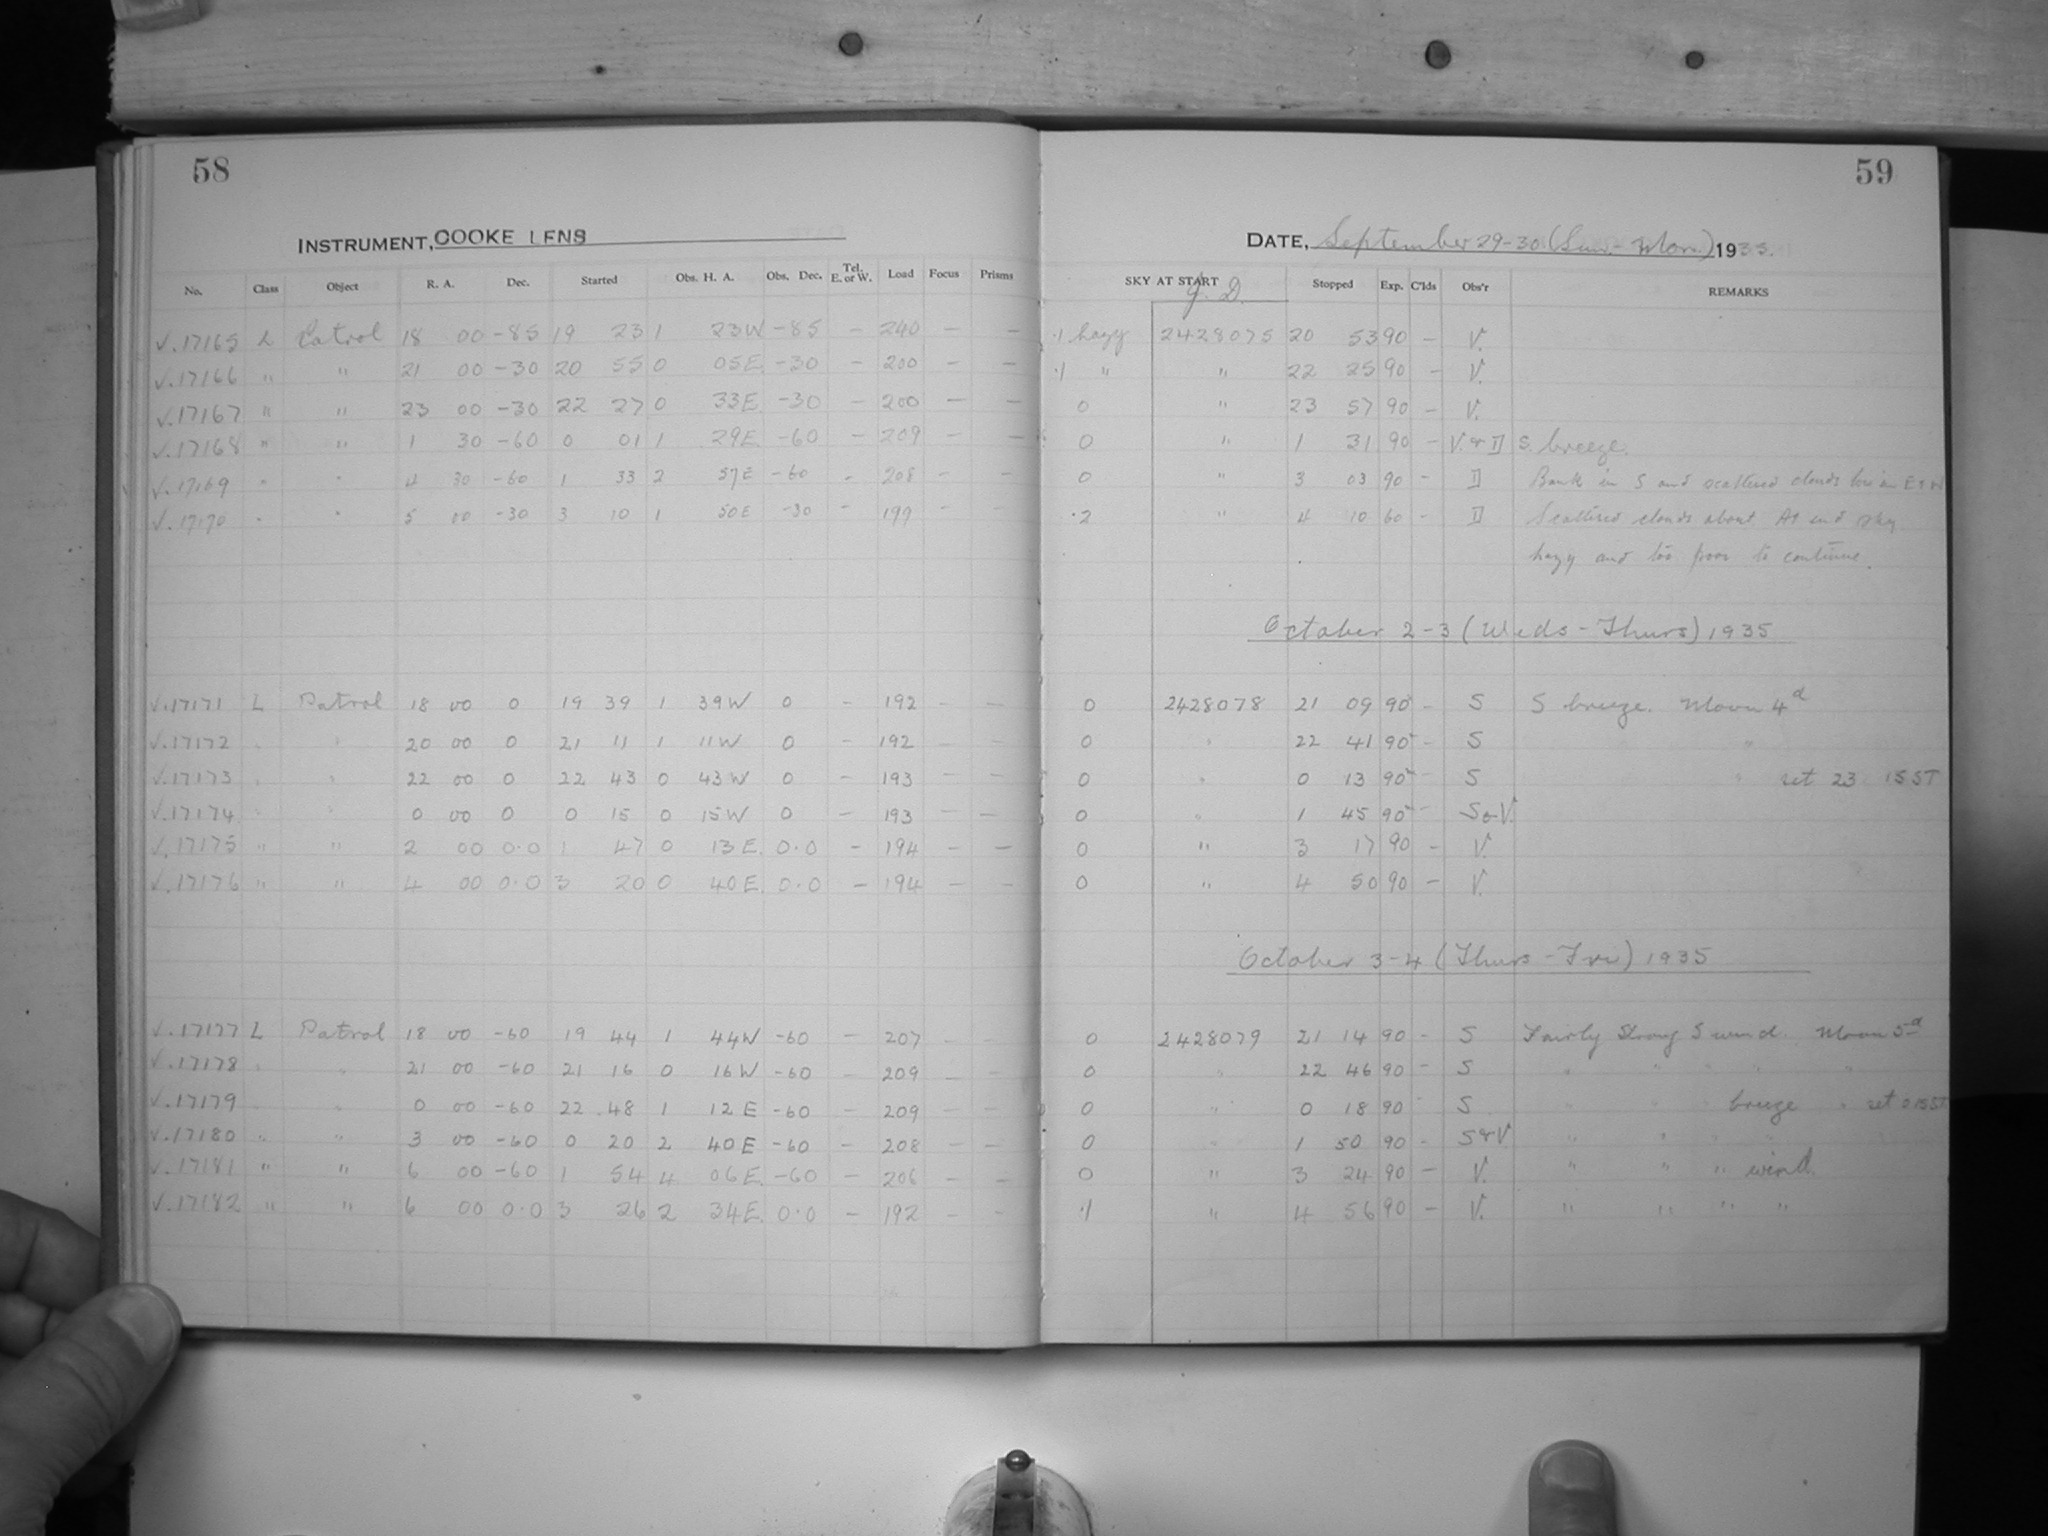 58
59
INSTRUMENT, COOKE LENS
DATE, September 29-30 (Sun.-Mon.) 1935.
No. Class Object R. A. Dec. Started Obs. H. A. Obs. Dec. Tel. E. or W. Load Focus Prisms SKY AT START J. D. Stopped Exp. C'lds Obs'r REMARKS
V.17165 L Patrol 18 00 -85 19 23 1 23W -85 - 240 - - .1 hazy 2428075 20 53 90 - V.
V.17166 " " 21 00 -30 20 55 0 05E. -30 - 200 - - .1 " " 22 25 90 - V.
V.17167 " " 23 00 -30 22 27 0 33E. -30 - 200 - - 0 " 23 57 90 - V.
V.17168 " " 1 30 -60 0 01 1 29E. -60 - 209 - - 0 " 1 31 90 - V. & D S. breeze.
V.17169 " " 4 30 -60 1 33 2 57E -60 - 208 - - 0 " 3 03 90 - D Bank in S and scattered clouds low in E & W
V.17170 " " 5 00 -30 3 10 1 50E -30 - 199 - - .2 " 4 10 60 - D Scattered clouds about. At end sky
hazy and too poor to continue.
October 2-3 (Weds - Thurs) 1935
V.17171 L Patrol 18 00 0 19 39 1 39W 0 - 192 - - 0 2428078 21 09 90 - S S breeze. Moon 4d
V.17172 " " 20 00 0 21 11 1 11W 0 - 192 - - 0 " 22 41 90 - S "
V.17173 " " 22 00 0 22 43 0 43W 0 - 193 - - 0 " 0 13 90 - S " set 23 15 ST
V.17174 " " 0 00 0 0 15 0 15W 0 - 193 - - 0 " 1 45 90 - S & V.
V.17175 " " 2 00 0.0 1 47 0 13E. 0.0 - 194 - - 0 " 3 17 90 - V.
V.17176 " " 4 00 0.0 3 20 0 40E. 0.0 - 194 - - 0 " 4 50 90 - V.
October 3-4 (Thurs - Fri) 1935
V.17177 L Patrol 18 00 -60 19 44 1 44W -60 - 207 - - 0 2428079 21 14 90 - S Fairly Strong S wind. Moon 5d
V.17178 " " 21 00 -60 21 16 0 16W -60 - 209 - - 0 " 22 46 90 - S " " " " "
V.17179 " " 0 00 -60 22 48 1 12E -60 - 209 - - 0 " 0 18 90 - S " " " breeze " set 0 15 ST
V.17180 " " 3 00 -60 0 20 2 40E -60 - 208 - - 0 " 1 50 90 - S & V " " " "
V.17181 " " 6 00 -60 1 54 4 06E. -60 - 206 - - 0 " 3 24 90 - V. " " " wind.
V.17182 " " 6 00 0.0 3 26 2 34E. 0.0 - 192 - - .1 " 4 56 90 - V. " " " "